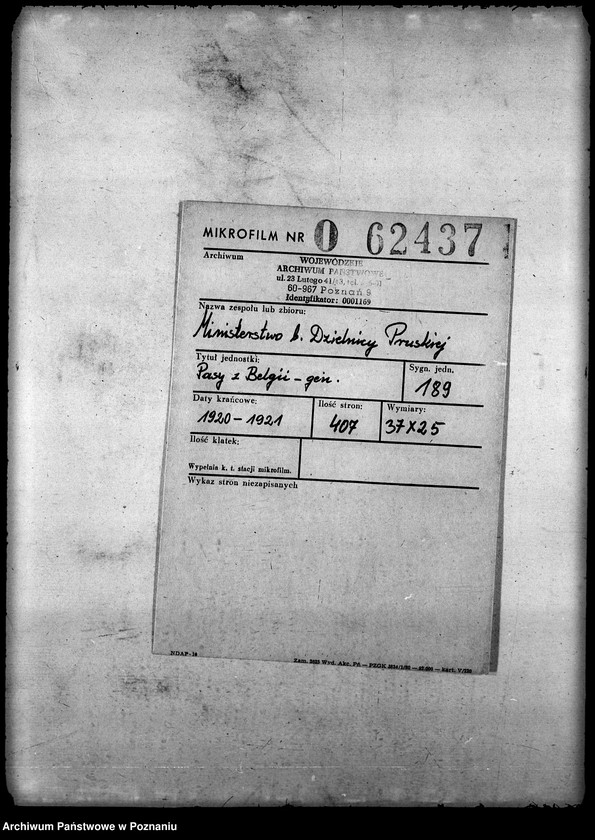 MIKROFILM NR 0 62437
Archiwum
WOJEWÓDZKIE
ARCHIWUM PAŃSTWOWE
ul. 23 Lutego 41/43,
60-967 Poznań 9
Identyfikator: 0001169
Nazwa zespołu lub zbioru:
Ministerstwo b. Dzielnicy Pruskiej
Tytuł jednostki:
Pasy z Belgii – gen.
Sygn. jedn.
189
Daty krańcowe:
1920 – 1921
Ilość stron:
407
Wymiary:
37 X 25
Ilość klatek:
Wypełnia k. t. stacji mikrofilm.
Wykaz stron niezapisanych
NDAP-
Zam. Wyd. Akc. Pł — PZGK
Archiwum Państwowe w Poznaniu